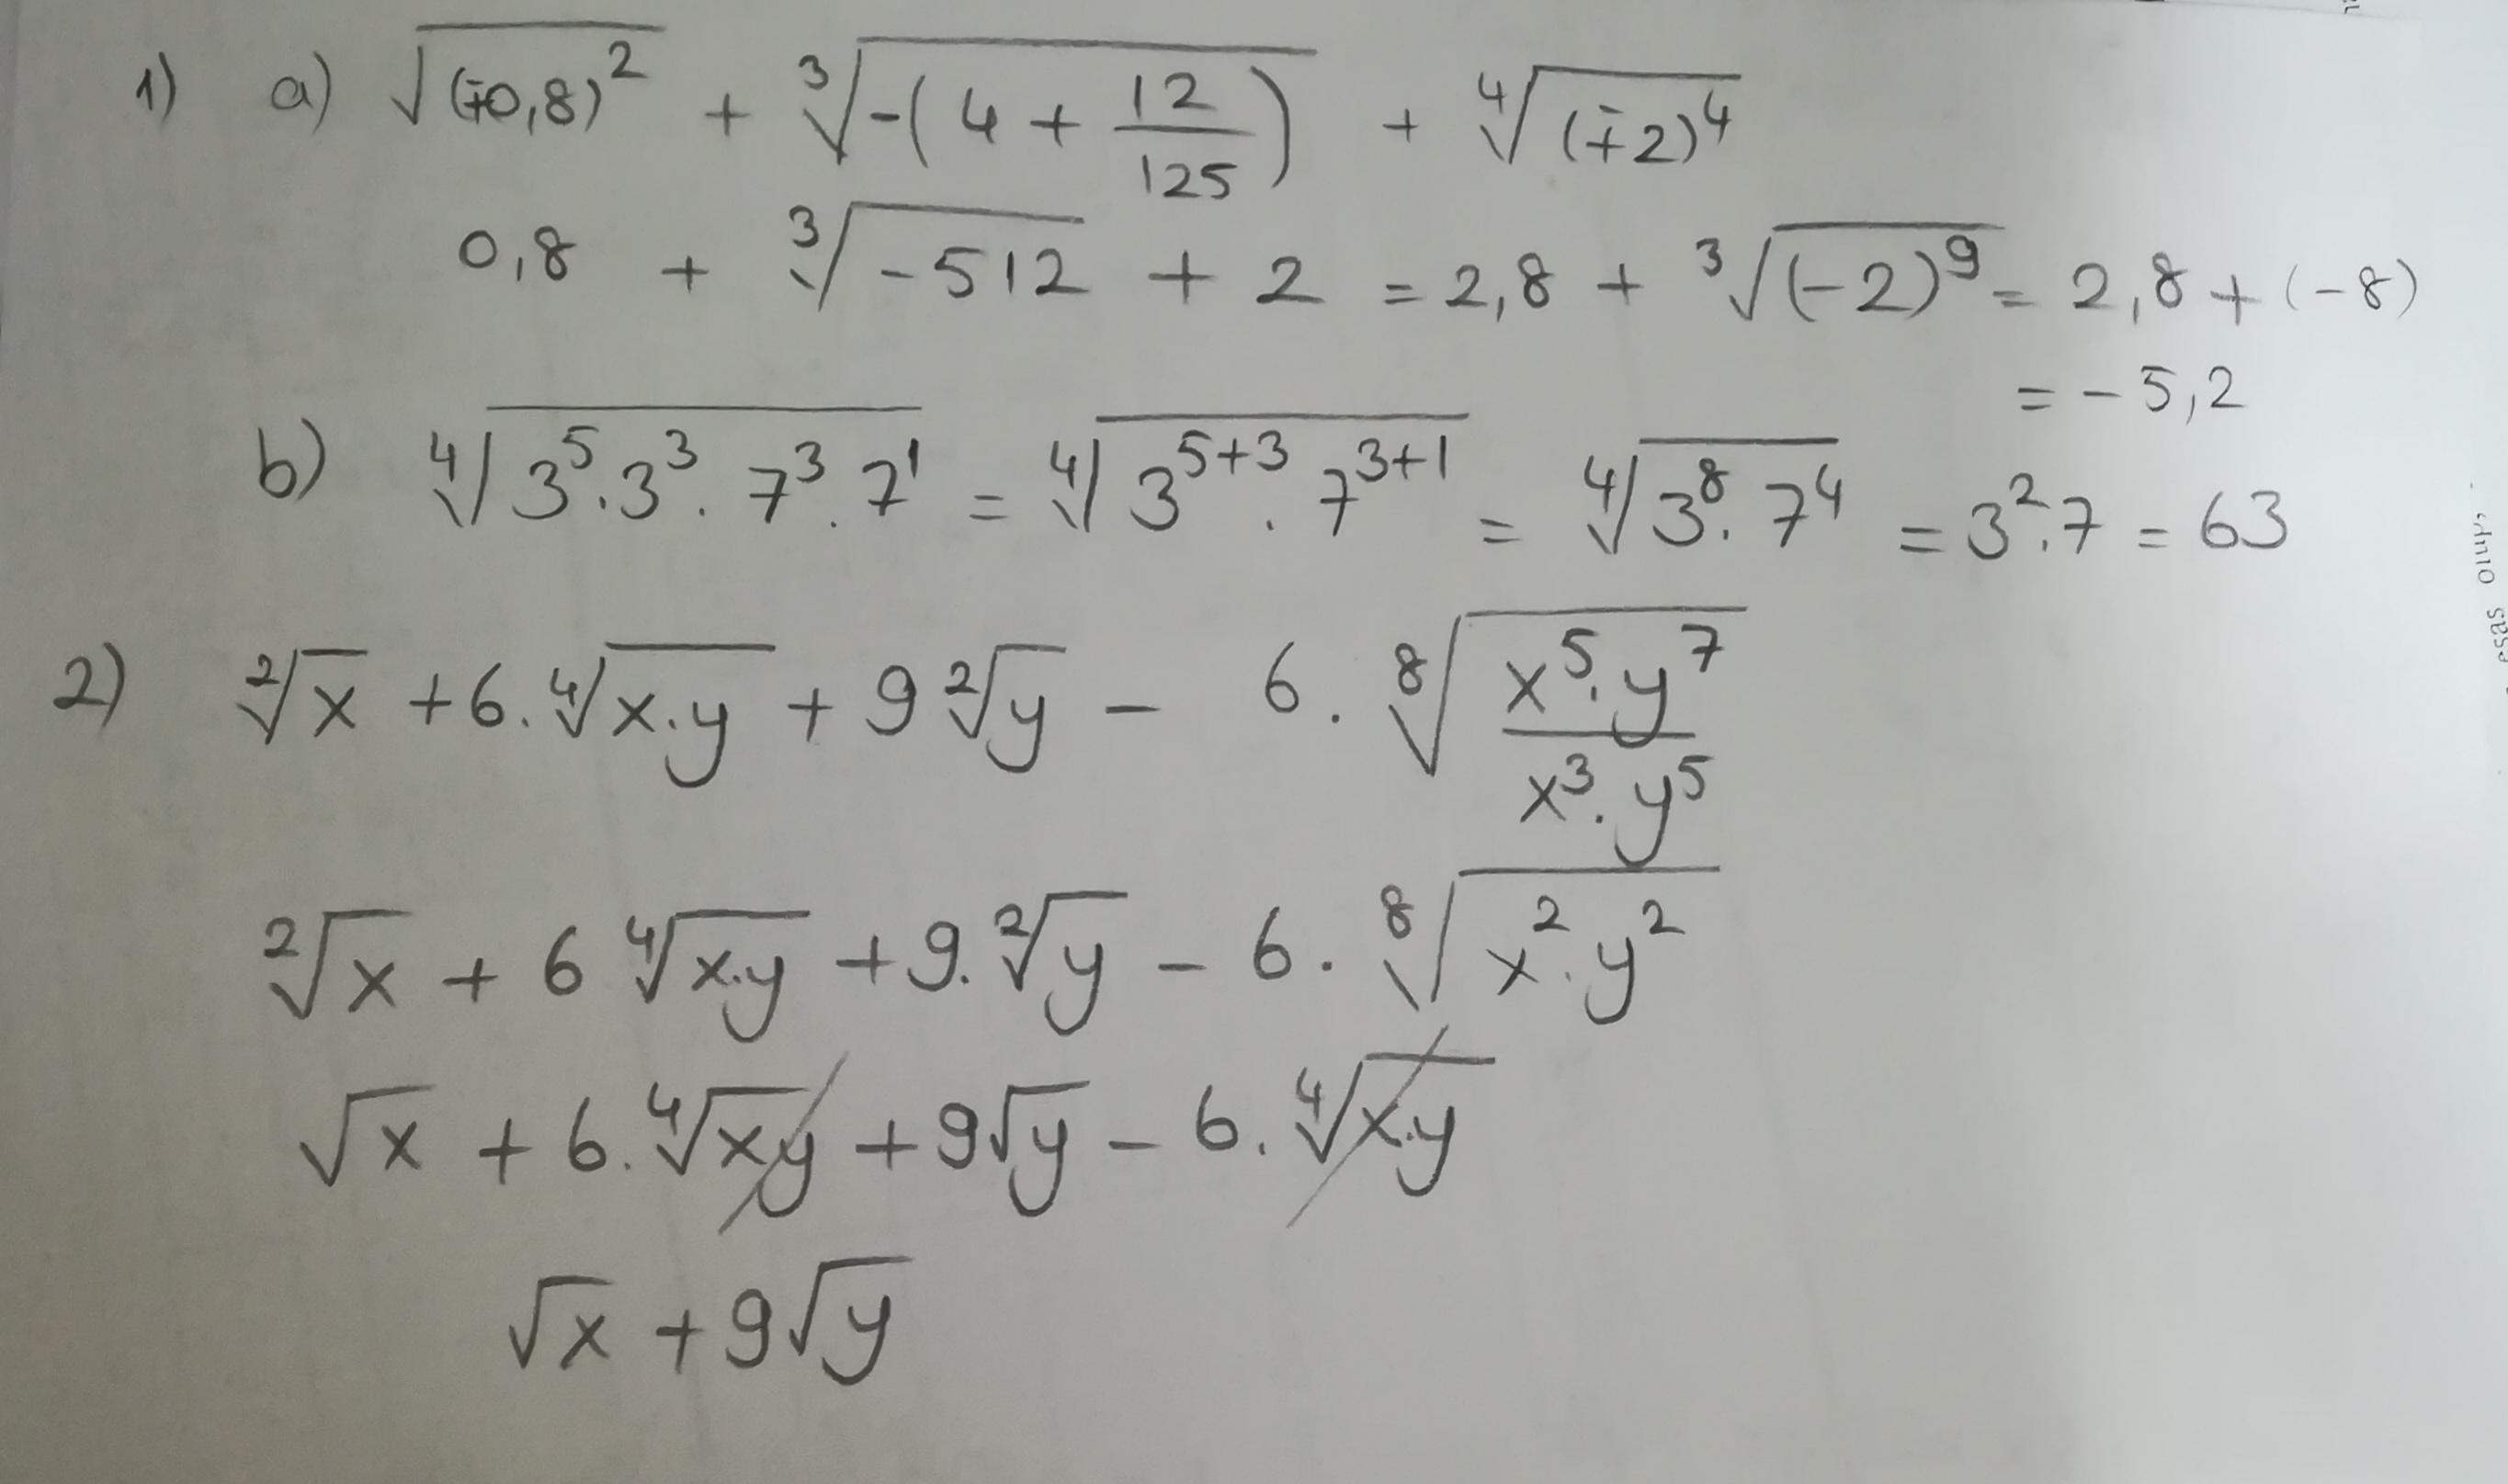 1) a) √(∓0,8)² + ³√-(4 + 12/125) + ⁴√(∓2)⁴
0,8 + ³√-512 + 2 = 2,8 + ³√(-2)⁹ = 2,8 + (-8)
= -5,2
b) ⁴√3⁵.3³.7³.7¹ = ⁴√3⁵⁺³.7³⁺¹ = ⁴√3⁸.7⁴ = 3².7 = 63
2) ²√x + 6.⁴√x.y + 9 ²√y - 6.⁸√x⁵.y⁷/x³.y⁵
²√x + 6 ⁴√x.y + 9.²√y - 6.⁸√x².y²
√x + 6.⁴√xy + 9√y - 6.⁴√x.y
√x + 9√y